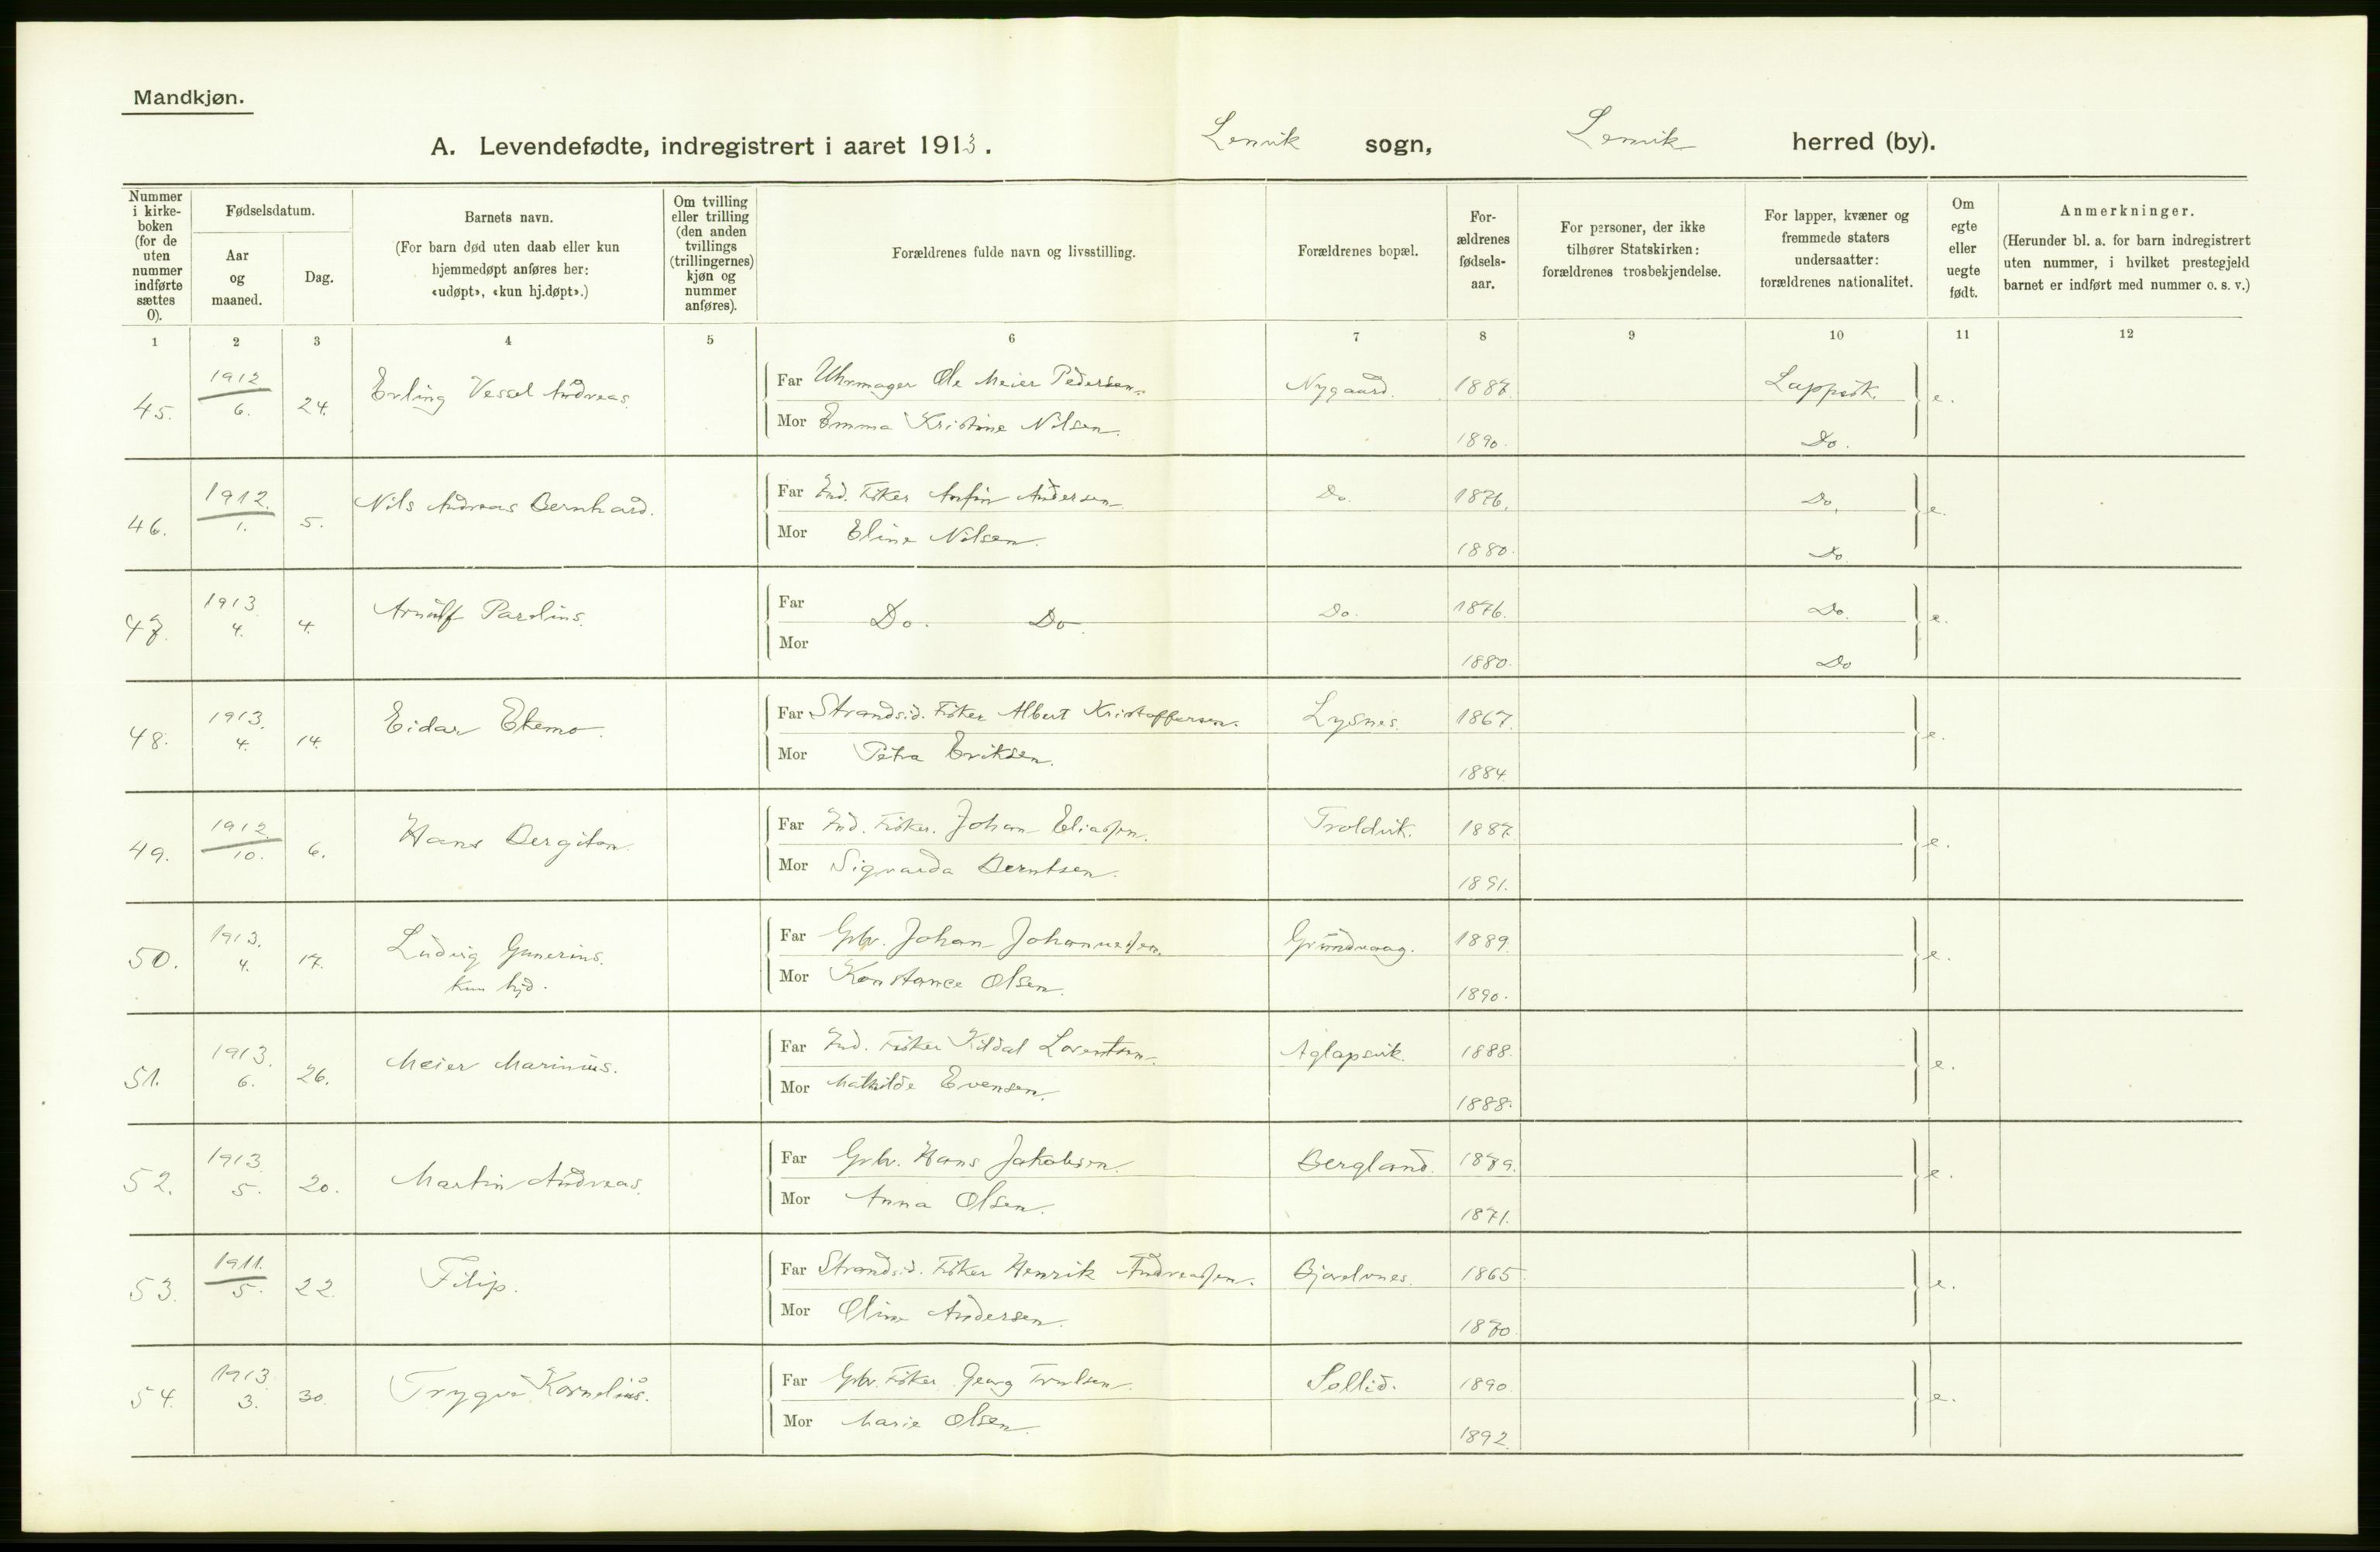 Mandkjøn.
A. Levendefødte, indregistrert i aaret 1913. Lenvik sogn, Lenvik herred (by).
Nummer i kirkeboken (for de uten nummer indførte sættes 0).
Fødselsdatum.
Aar og maaned.
Dag.
Barnets navn.
(For barn død uten daab eller kun hjemmedøpt anføres her: «udøpt», «kun hj.døpt».)
Om tvilling eller trilling (den anden tvillings (trillingernes) kjøn og nummer anføres).
Forældrenes fulde navn og livsstilling.
Forældrenes bopæl.
Forældrenes fødselsaar.
For personer, der ikke tilhører Statskirken: forældrenes trosbekjendelse.
For lapper, kvæner og fremmede staters undersaatter: forældrenes nationalitet.
Om egte eller uegte født.
Anmerkninger.
(Herunder bl. a. for barn indregistrert uten nummer, i hvilket prestegjeld barnet er indført med nummer o. s. v.)
1 2 3 4 5 6 7 8 9 10 11 12
45. 1912 6. 24. Erling Vessel Andreas. Far Uhrmager Ole Meier Pedersen. Nygaard. 1887. Lappisk. e.
Mor Emma Kristine Nilsen. 1890. Do.
46. 1912. 1. 5. Nils Andreas Bernhard. Far Ind. Fisker Anfin Andersen. Do. 1876. Do. e.
Mor Eline Nilsen. 1880. Do
47. 1913. 4. 4. Arnulf Parelius. Far Do. Do. Do. 1876. Do. e.
Mor 1880. Do
48. 1913. 4. 14. Eidar Ekemo. Far Strandsid. Fisker Albert Kristoffersen. Lysnes. 1867. e.
Mor Petra Eriksen. 1884.
49. 1912 10. 6. Hans Bergiton. Far Ind. Fisker. Johan Eliassen. Troldvik. 1887. e.
Mor Sigvarda Berntsen. 1891.
50. 1913. 4. 17. Ludvig Gunerius. Far Gbr. Johan Johannessen. Grundvaag. 1889. e.
kun hjd. Mor Konstance Olsen. 1890.
51. 1913. 6. 26. Meier Marinius. Far Ind. Fisker Kildal Lorentsen. Aglapsvik. 1888. e.
Mor Mathilde Evensen. 1888.
52. 1913. 5. 20. Martin Andreas. Far Gbr. Hans Jakobsen. Bergland. 1879. e.
Mor Anna Olsen. 1871.
53. 1911. 5. 22. Filip. Far Strandsid. Fisker Henrik Andreassen. Gjovelvnes. 1865. e.
Mor Oline Andersen. 1870.
54. 1913 3. 30. Trygve Kornelius. Far Gbr. Fisker Georg Trulsen. Sollid. 1890. e.
Mor Marie Olsen. 1892.